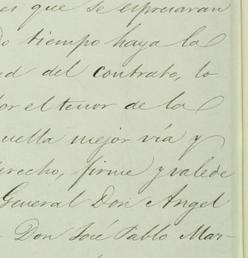 es que se espresaran
do tiempo haya la
ed del contrato, lo
or el tenor de la
uella mejor vía y
erecho, firme y valede
General Don Angel
Don José Pablo Mar-